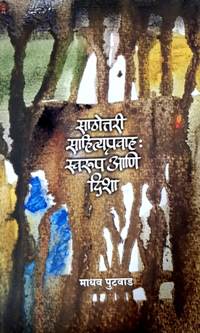 साठोत्तरी
साहित्यप्रवाह:
स्वरूप आणि
दिशा
माधव पुटवाड